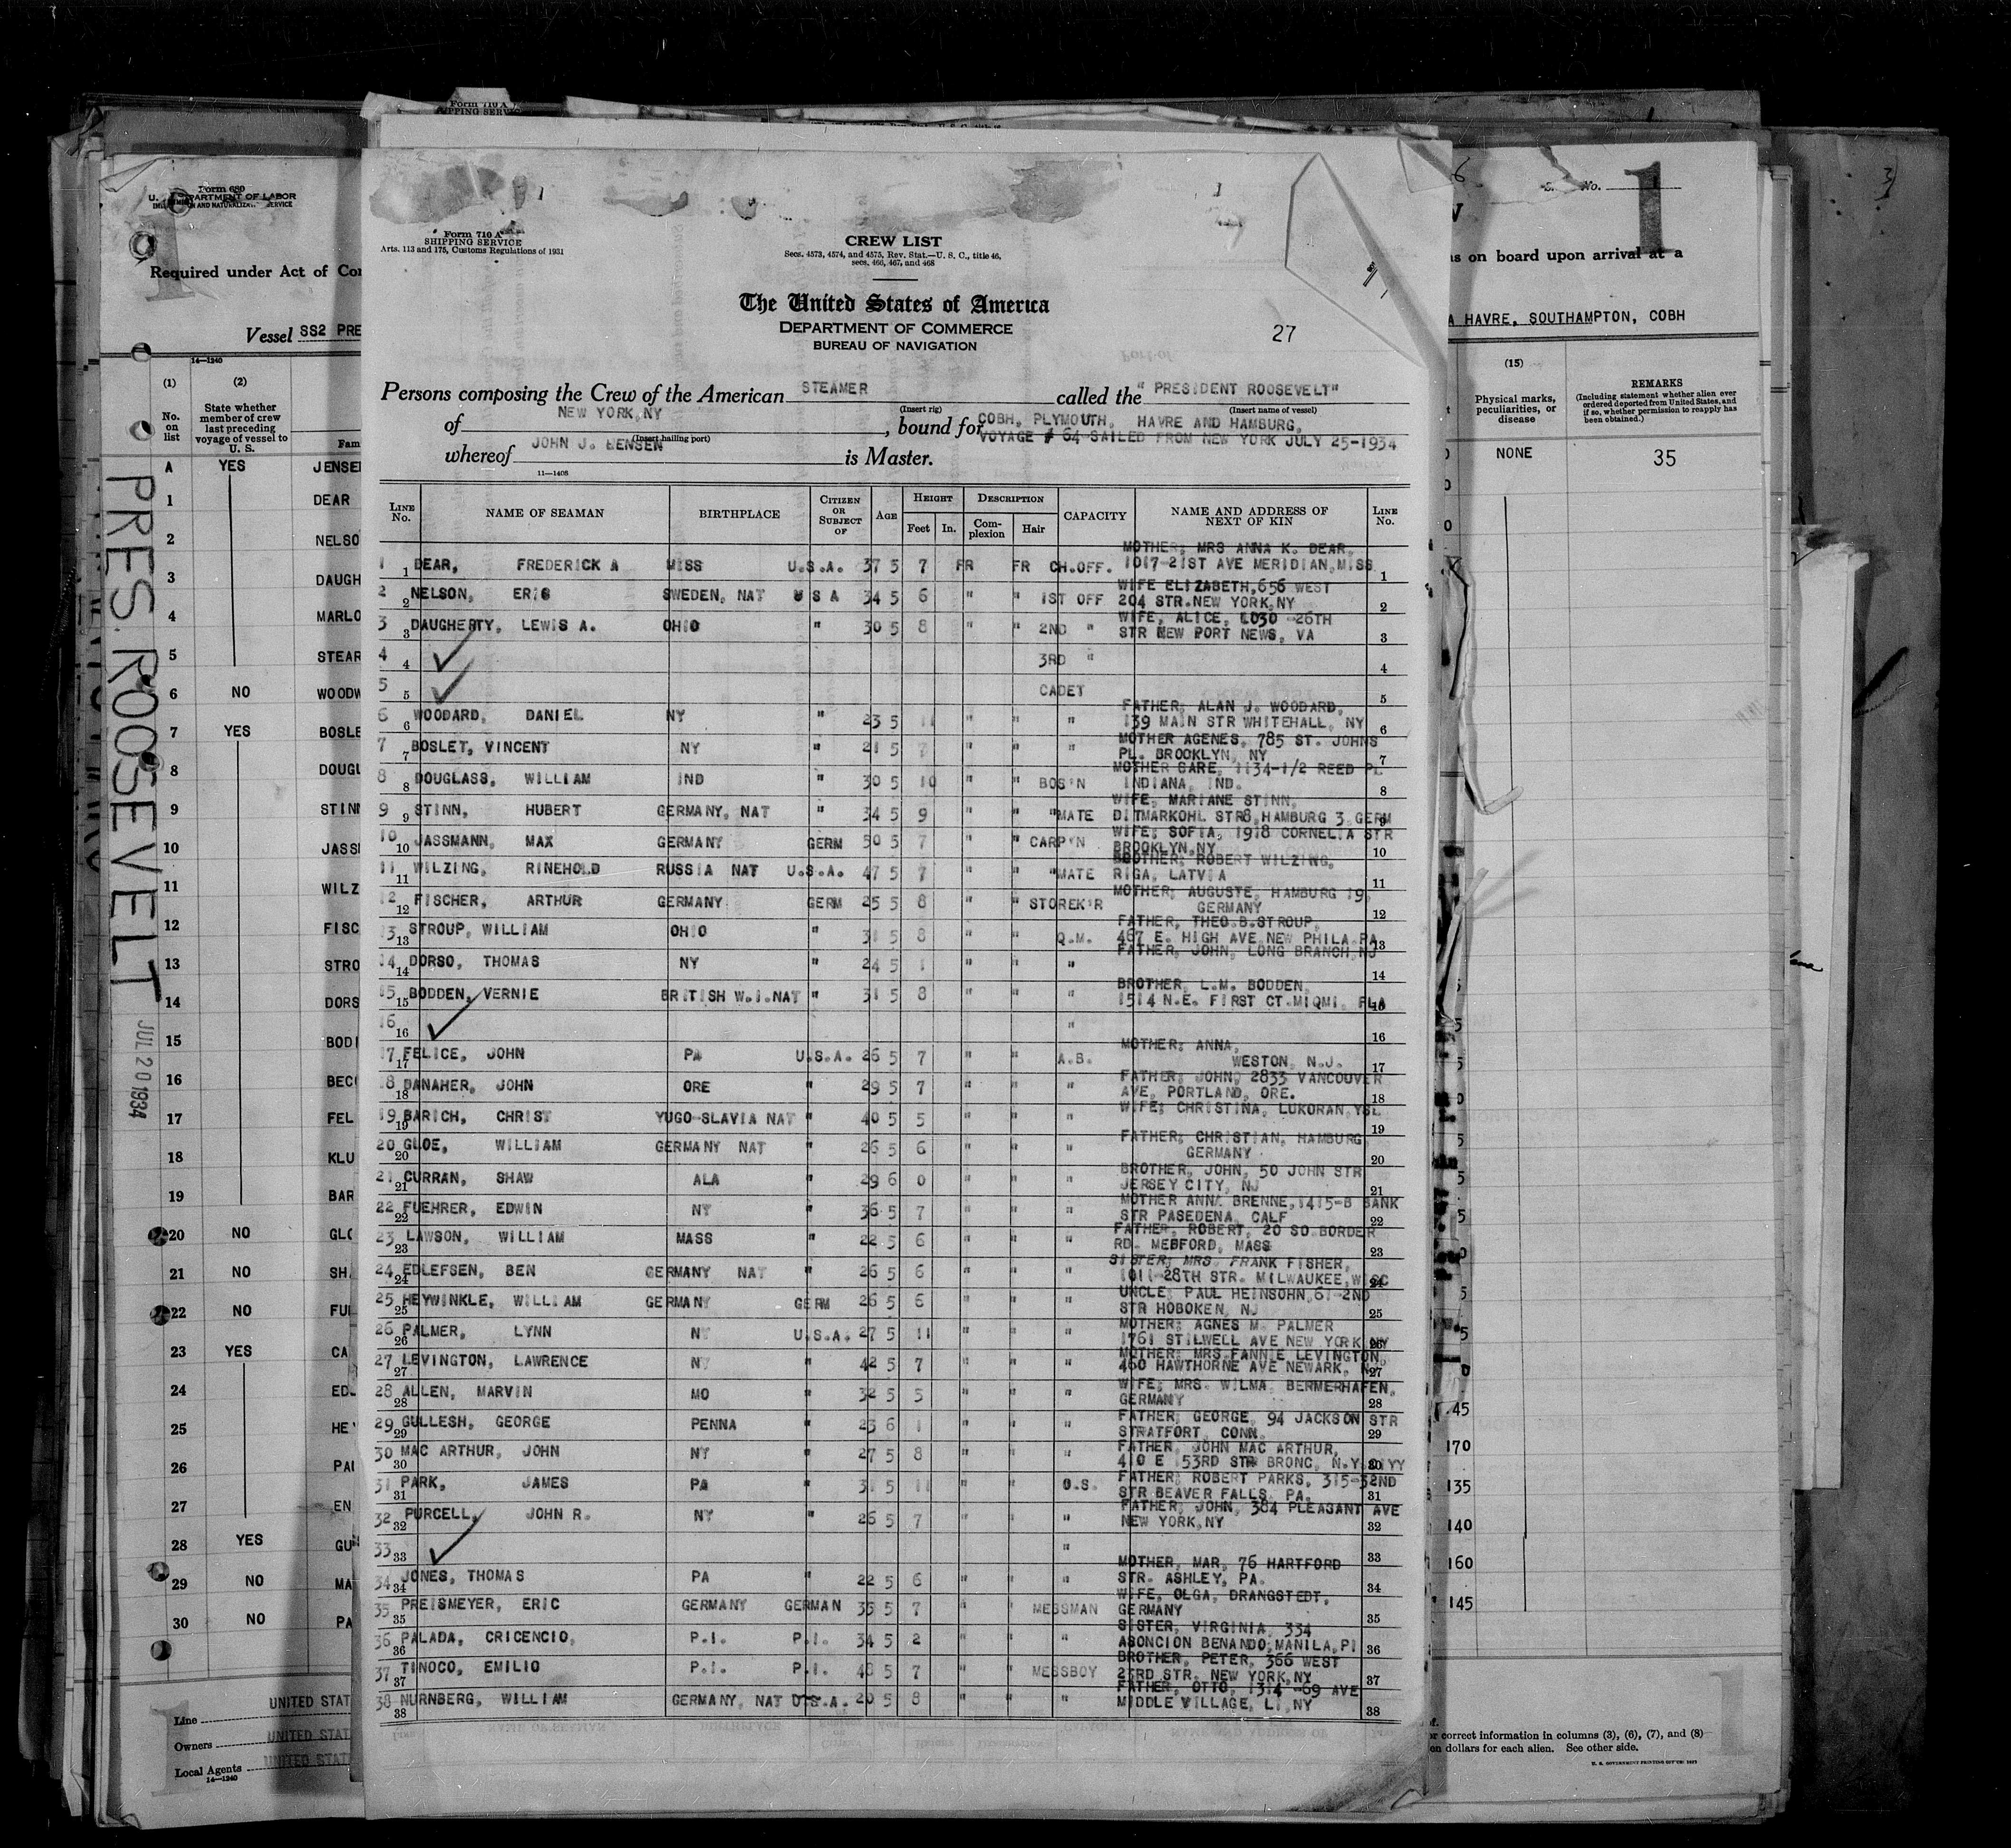 Form 710 A
SHIPPING SERVICE
Arts. 113 and 175, Customs Regulations of 1931
CREW LIST
Secs. 4573, 4574, and 4575, Rev. Stat.—U. S. C., title 46,
secs. 466, 467, and 468
The United States of America
DEPARTMENT OF COMMERCE
BUREAU OF NAVIGATION
27
Persons composing the Crew of the American STEAMER called the " PRESIDENT ROOSEVELT"
(Insert rig) (Insert name of vessel)
of NEW YORK,NY, bound for COBH, PLYMOUTH, HAVRE AND HAMBURG,
(Insert hailing port) VOYAGE # 64 SAILED FROM NEW YORK JULY 25-1934
whereof JOHN J. JENSEN is Master.
11—1408
LINE No. NAME OF SEAMAN BIRTHPLACE CITIZEN OR SUBJECT OF AGE HEIGHT Feet In. DESCRIPTION Complexion Hair CAPACITY NAME AND ADDRESS OF NEXT OF KIN LINE No.
MOTHER; MRS ANNA K. DEAR,
1 1 DEAR, FREDERICK A MISS U.S.A. 37 5 7 FR FR CH.OFF. 1017-21ST AVE MERIDIAN,MISS 1
WIFE ELIZABETH,656 WEST
2 2 NELSON, ERIC SWEDEN, NAT U S A 34 5 6 " " 1ST OFF 204 STR.NEW YORK,NY 2
WIFE, ALICE, 1030 -26TH
3 3 DAUGHERTY, LEWIS A. OHIO " 30 5 8 " " 2ND " STR NEW PORT NEWS, VA 3
4 4 3RD " 4
5 5 CADET 5
FATHER; ALAN J. WOODARD,
6 6 WOODARD, DANIEL NY " 23 5 11 " " " 139 MAIN STR WHITEHALL, NY 6
MOTHER AGENES, 785 ST. JOHNS
7 7 BOSLET, VINCENT NY " 21 5 7 " " " PL. BROOKLYN, NY 7
MOTHER SARE, 1134-1/2 REED PL
8 8 DOUGLASS, WILLIAM IND " 30 5 10 " " BOS'N INDIANA, IND. 8
WIFE, MARIANE STINN,
9 9 STINN, HUBERT GERMANY, NAT " 34 5 9 " " "MATE DITMARKOHL STR8,HAMBURG 3 GERM 9
WIFE; SOFIA, 1918 CORNELIA STR
10 10 JASSMANN, MAX GERMANY GERM 50 5 7 " " CARP'N BROOKLYN,NY 10
BROTHER; ROBERT WILZING,
11 11 WILZING, RINEHOLD RUSSIA NAT U.S.A. 47 5 7 " " "MATE RIGA, LATVIA 11
MOTHER; AUGUSTE, HAMBURG 19,
12 12 FISCHER, ARTHUR GERMANY GERM 25 5 8 " " STOREK'R GERMANY 12
FATHER, THEO.B.STROUP,
13 13 STROUP, WILLIAM OHIO " 31 5 8 " " Q.M. 467 E. HIGH AVE NEW PHILA PA 13
FATHER, JOHN, LONG BRANCH,NJ
14 14 DORSO, THOMAS NY " 24 5 1 " " " 14
BROTHER, L.M. BODDEN,
15 15 BODDEN, VERNIE BRITISH W.I.NAT " 31 5 8 " " " 1514 N.E. FIRST CT.MIQMI, FLA 15
16 16 " 16
MOTHER; ANNA,
17 17 FELICE, JOHN PA U.S.A. 26 5 7 " " A.B. WESTON, N.J. 17
FATHER; JOHN, 2833 VANCOUVER
18 18 DANAHER, JOHN ORE " 29 5 7 " " " AVE, PORTLAND, ORE. 18
WIFE; CHRISTINA, LUKORAN,YSL
19 19 BARICH, CHRIST YUGO-SLAVIA NAT " 40 5 5 " " " 19
FATHER; CHRISTIAN, HAMBURG
20 20 GLOE, WILLIAM GERMANY NAT " 26 5 6 " " " GERMANY 20
BROTHER, JOHN, 50 JOHN STR
21 21 CURRAN, SHAW ALA " 29 6 0 " " " JERSEY CITY, NJ 21
MOTHER ANN BRENNE,1415-B BANK
22 22 FUEHRER, EDWIN NY " 36 5 7 " " " STR PASEDENA, CALF 22
FATHER, ROBERT, 20 SO BORDER
23 23 LAWSON, WILLIAM MASS " 22 5 6 " " " RD. MEDFORD, MASS 23
SISTER; MRS. FRANK FISHER,
24 24 EDLEFSEN, BEN GERMANY NAT " 26 5 6 " " " 1011-28TH STR. MILWAUKEE,WISC 24
UNCLE; PAUL HEINSOHN,61-2ND
25 25 HEYWINKLE, WILLIAM GERMANY GERM 26 5 6 " " " STR HOBOKEN, NJ 25
MOTHER; AGNES M. PALMER
26 26 PALMER, LYNN NY U.S.A. 27 5 11 " " " 1761 STILWELL AVE NEW YORK NY 26
MOTHER; MRS FANNIE LEVINGTON,
27 27 LEVINGTON, LAWRENCE NY " 42 5 7 " " " 460 HAWTHORNE AVE NEWARK, NJ 27
WIFE; MRS. WILMA BERMERHAFEN,
28 28 ALLEN, MARVIN MO " 32 5 5 " " " GERMANY 28
FATHER; GEORGE, 94 JACKSON STR
29 29 GULLESH, GEORGE PENNA " 23 6 1 " " " STRATFORT, CONN. 29
FATHER, JOHN MAC ARTHUR,
30 30 MAC ARTHUR, JOHN NY " 27 5 8 " " " 410 E 153RD STR BRONC, N.Y. 30
FATHER; ROBERT PARKS, 315-32ND
31 31 PARK, JAMES PA " 31 5 11 " " O.S. STR BEAVER FALLS, PA. 31
FATHER; JOHN, 384 PLEASANT AVE
32 32 PURCELL, JOHN R. NY " 26 5 7 " " " NEW YORK,NY 32
33 33 " 33
MOTHER, MAR, 76 HARTFORD
34 34 JONES, THOMAS PA " 22 5 6 " " " STR. ASHLEY, PA. 34
WIFE, OLGA, DRANGSTEDT,
35 35 PREISMEYER, ERIC GERMANY GERMAN 35 5 7 " " MESSMAN GERMANY 35
SISTER, VIRGINIA, 334
36 36 PALADA, CRICENCIO, P.I. P.I. 34 5 2 " " " ASONCION BENANDO,MANILA,PI 36
BROTHER, PETER, 366 WEST
37 37 TINOCO, EMILIO P.I. P.I. 48 5 7 " " MESSBOY 23RD STR. NEW YORK,NY 37
FATHER, OTTO, 1314 -69 AVE
38 38 NURNBERG, WILLIAM GERMANY, NAT U.S.A. 20 5 8 " " " MIDDLE VILLAGE, LI,NY 38
Form 680
U. S. DEPARTMENT OF LABOR
Required under Act of
Vessel SS2 PRE
14—1240
(1) (2)
No. on list
State whether member of crew last preceding voyage of vessel to U. S.
Fam
A YES JENSE
1 DEAR
2 NELSO
3 DAUGH
4 MARLO
5 STEAR
6 NO WOODW
7 YES BOSLE
8 DOUGL
9 STINN
10 JASS
11 WILZ
12 FISC
13 STRO
14 DORS
15 BOD
16 BEC
17 FEL
18 KLU
19 BAR
20 NO GLO
21 NO SH
22 NO FU
23 YES CA
24 ED
25 HE
26 PA
27 EN
28 YES GU
29 NO MA
30 NO PA
Line UNITED STAT
Owners UNITED STAT
Local Agents UNITED STA
14—1240
PRES. ROOSEVELT
JUL 20 1934
No. 1
on board upon arrival at a
HAVRE, SOUTHAMPTON, COBH
(15)
Physical marks, peculiarities, or disease
REMARKS
(Including statement whether alien ever ordered deported from United States, and if so, whether permission to reapply has been obtained.)
NONE 35
45
170
135
140
160
145
correct information in columns (3), (6), (7), and (8)
dollars for each alien. See other side.